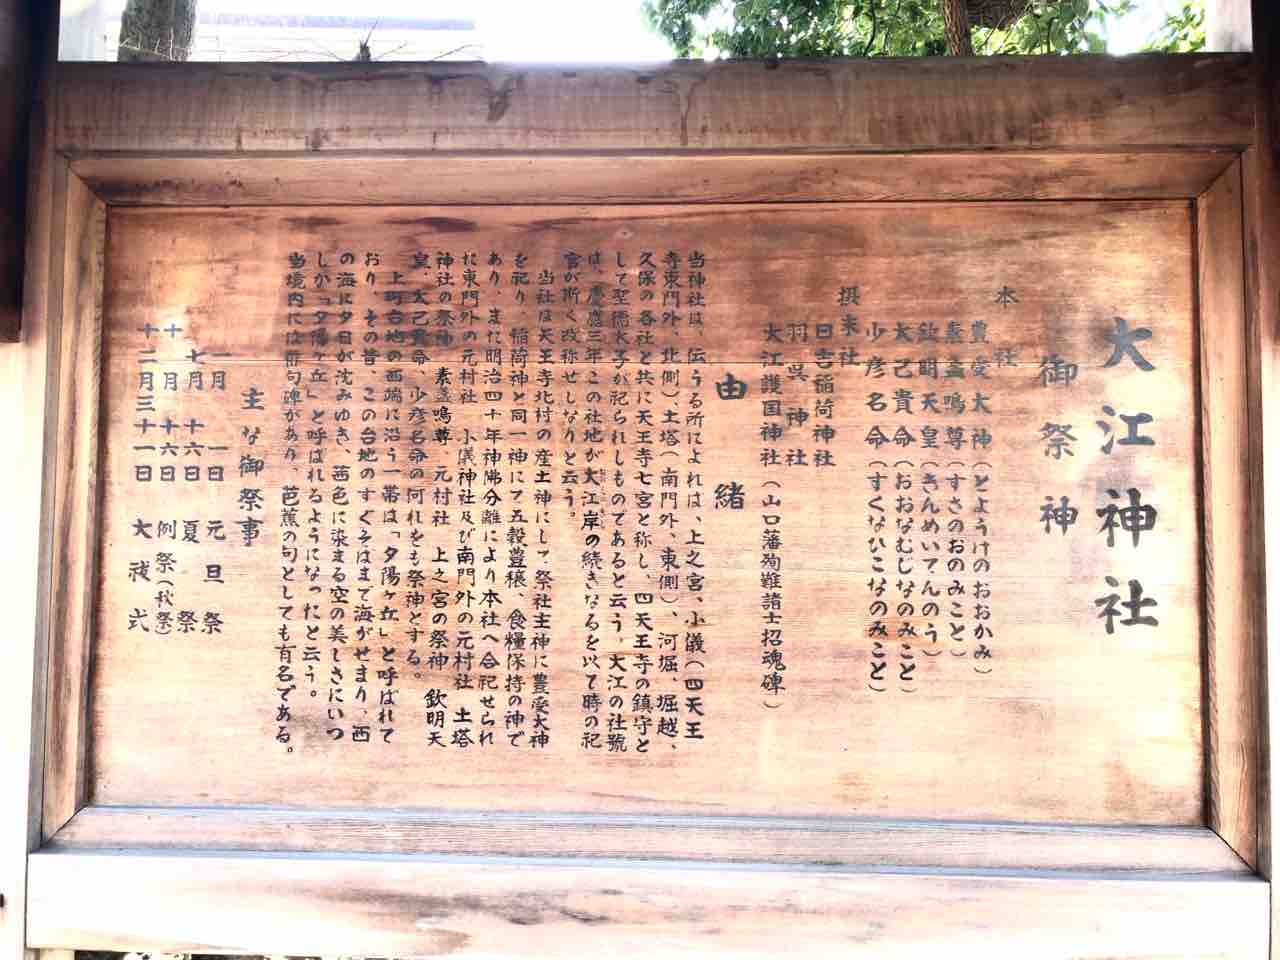 大江神社
御祭神
本社
豊受大神（とようけのおおかみ）
素盞嗚尊（すさのおのみこと）
欽明天皇（きんめいてんのう）
大己貴命（おおなむじなのみこと）
少彦名命（すくなひこなのみこと）
摂末社
日吉稲荷神社
羽呉神社
大江護国神社（山口藩殉難諸士招魂碑）
由緒
当神社は、伝うる所によれは、上之宮、小儀（四天王
寺東門外、北側）土塔（南門外、東側）、河堀、堀越、
久保の各社と共に天王寺七宮と称し、四天王寺の鎮守と
して聖徳太子が祀られしものであると云う。大江の社號
は、慶應三年この社地が大江岸の続きなるを以て時の祀
官が斯く改称せしなりと云う。
当社は天王寺北村の産土神にして祭社主神に豊受大神
を祀り、稲荷神と同一神にて五穀豊穣、食糧保持の神で
あり、また明治四十年神佛分離により本社へ合祀せられ
た東門外の元村社 小儀神社及び南門外の元村社 土塔
神社の祭神 素盞嗚尊、元村社 上之宮の祭神 欽明天
皇、大己貴命、少彦名命の何れをも祭神とする。
上町台地の西端に沿う一帯は「夕陽ヶ丘」と呼ばれて
おり、その昔、この台地のすぐそばまで海がせまり、西
の海に夕日が沈みゆき、茜色に染まる空の美しさにいつ
しか「夕陽ヶ丘」と呼ばれるようになったと云う。
当境内には俳句碑があり、芭蕉の句としても有名である。
主な御祭事
一月 一日 元旦祭
七月 十六日 夏祭
十月 十六日 例祭（秋祭）
十二月三十一日 大祓式